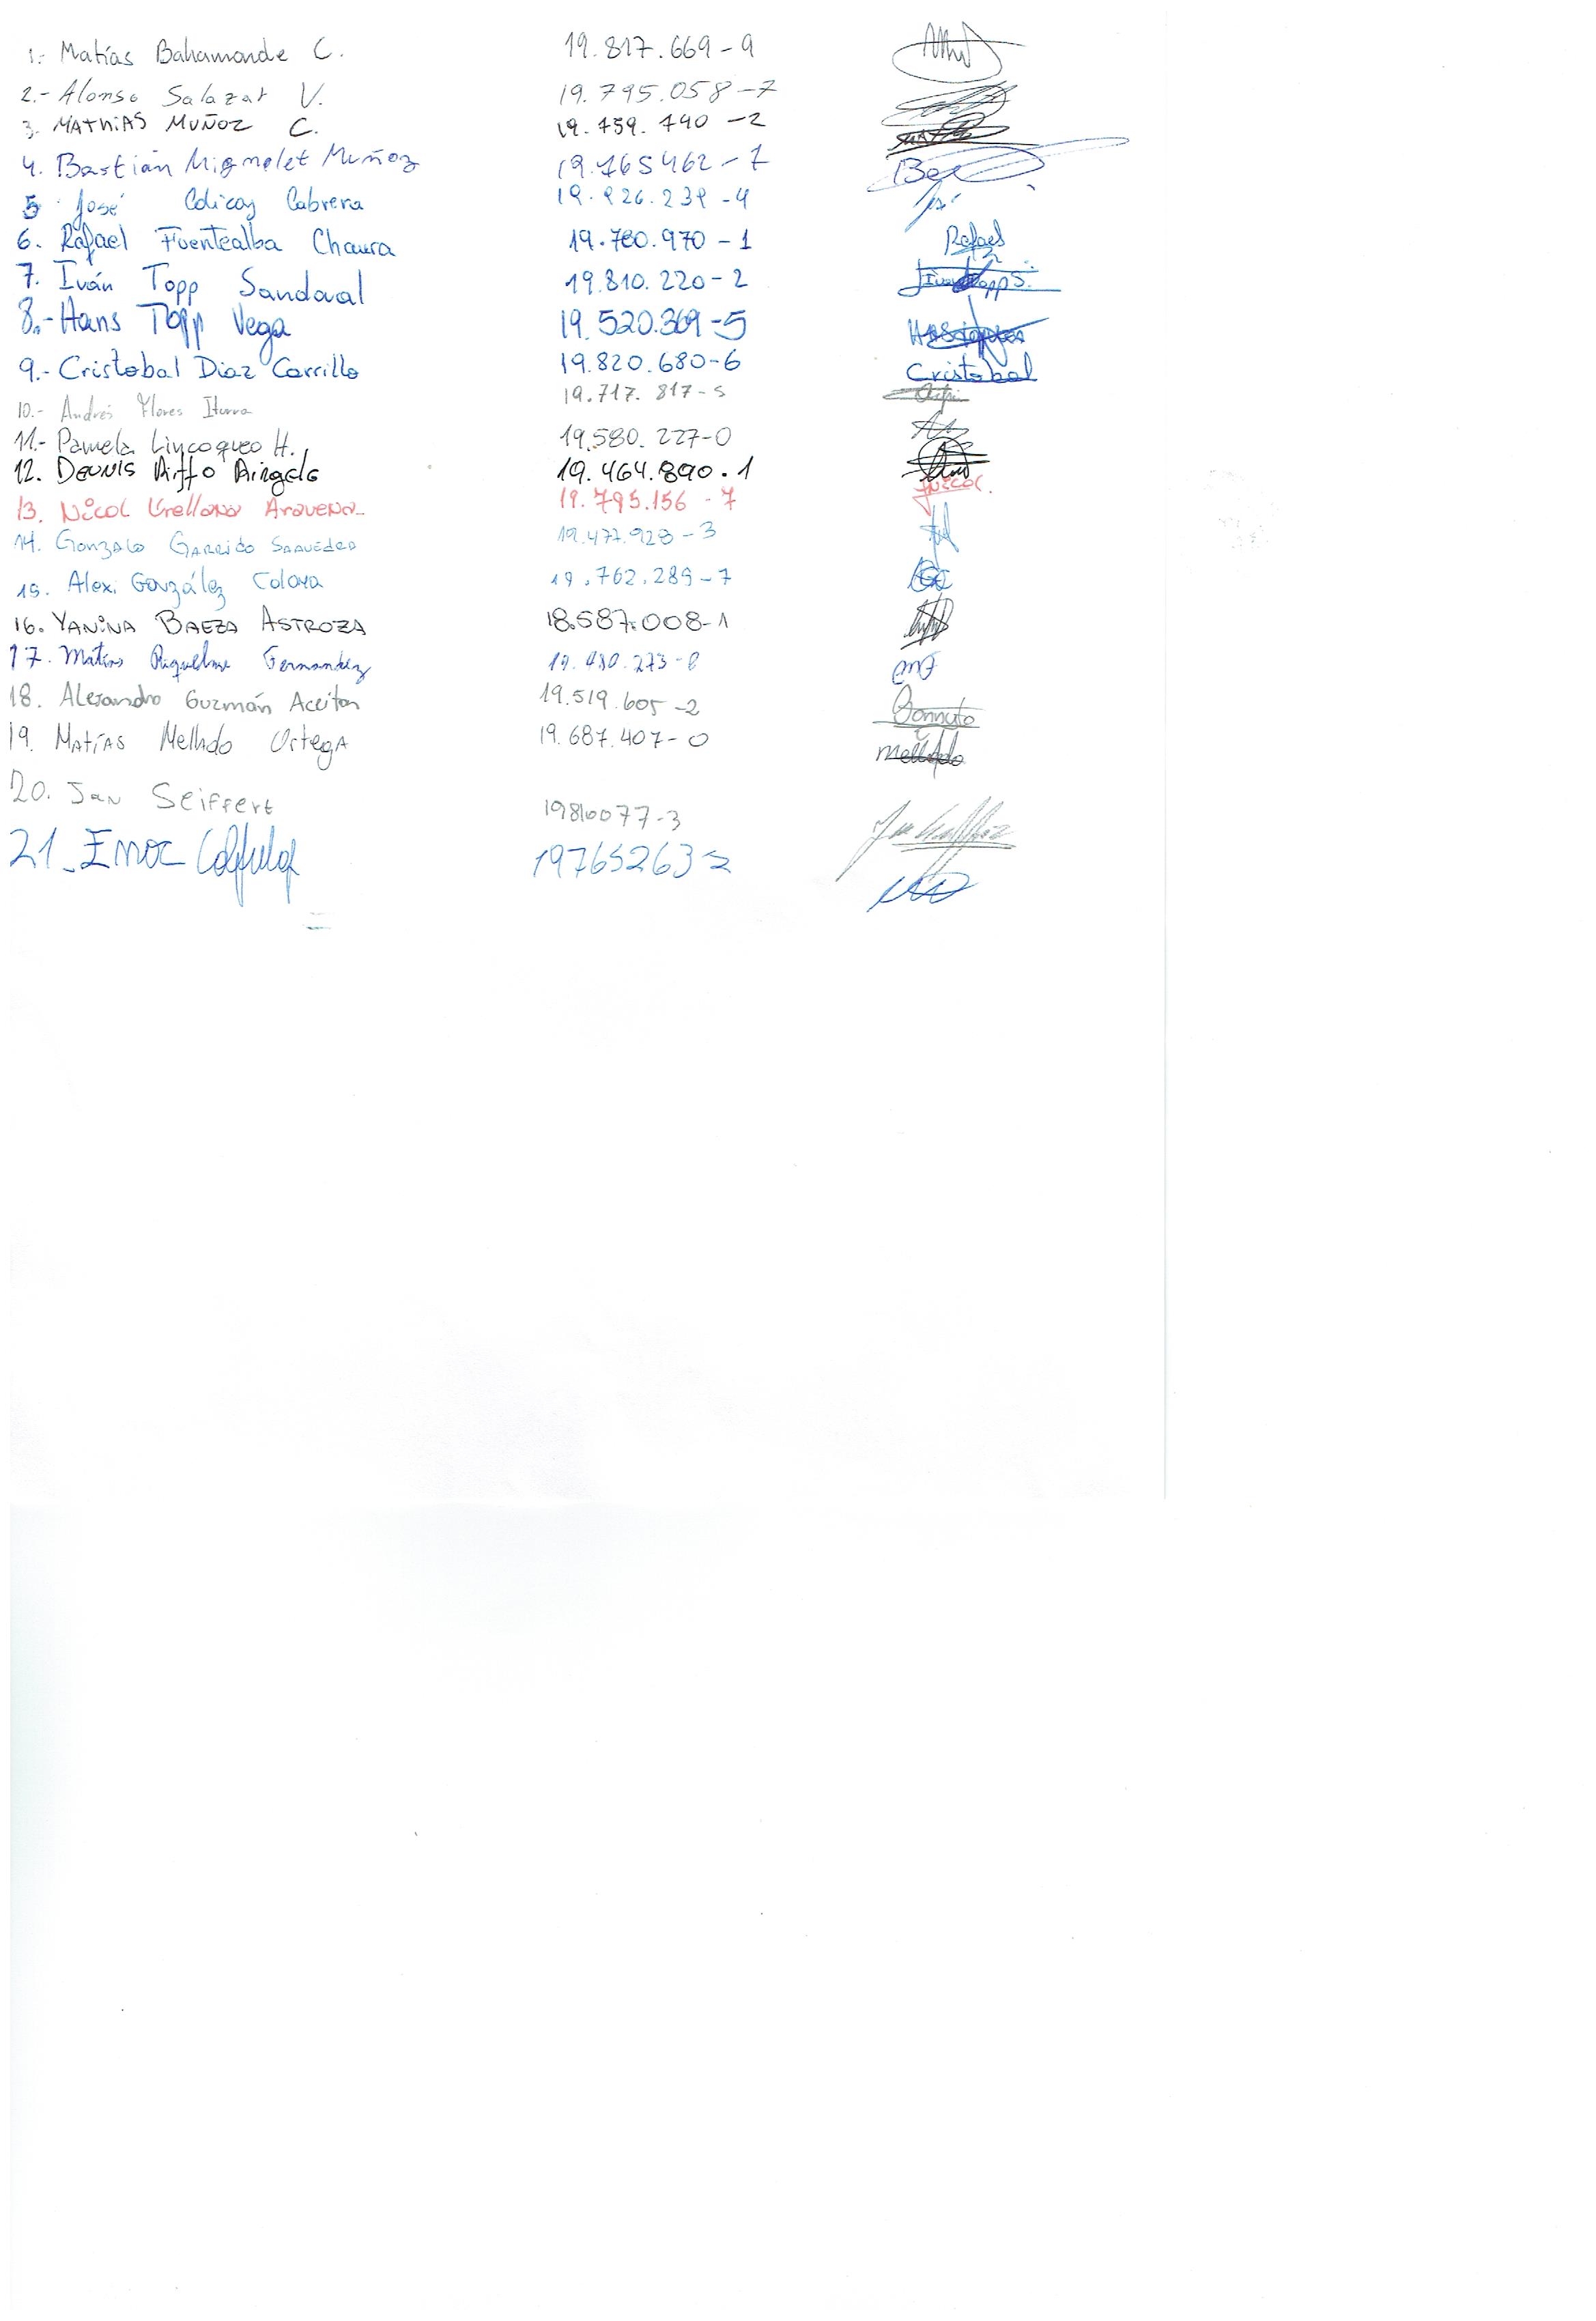 1.- Matías Bahamonde C. 19.817.669-9
2.- Alonso Salazar V. 19.795.058-7
3. MATHIAS MUÑOZ C. 19.759.740-2
4. Bastián Mignolet Muñoz 19.765462-7
5 José Colicoy Cabrera 19.926.239-4 José
6. Rafael Fuentealba Chaura 19.780.970-1 Rafael
7. Iván Topp Sandoval 19.810.220-2 Ivan Topp S.
8.- Hans Topp Vega 19.520.369-5
9.- Cristobal Diaz Carrillo 19.820.680-6 Cristobal
10.- Andrés Flores Iturra 19.717.817-5
11.- Pamela Lincoqueo H. 19.580.227-0
12. DENNIS Riffo 19.464.890.1
13. Nicol Orellana Aravena 19.795.156-7 Nicol
14. Gonzalo Garrido Saavedra 19.477.928-3
15. Alexi González Coloma 19.762.289-7
16. YANINA BAEZA ASTROZA 18.587.008-1
17. Matías Riquelme Fernandez
18. Alejandro Guzmán Aceiton 19.519.605-2
19. Matías Mellado Ortega 19.687.407-0 Mellado
20. Jan Seiffert 19816077-3
21. Enoc 19765263-2